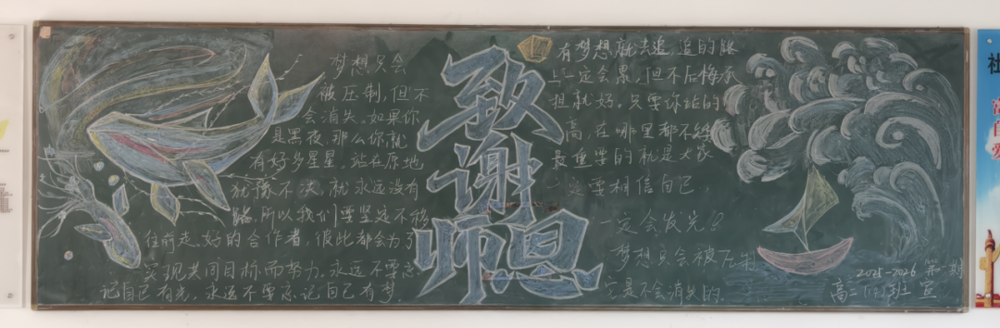 梦想只会
被压制，但不
会消失。如果你
是黑夜，那么你就
有好多星星，站在原地
犹豫不决，就永远没有
路，所以我们要坚定不移
往前走，好的合作者，彼此都会为了
实现共同目标而努力。永远不要忘
记自己有光，永远不要忘记自己有梦。
致谢
师恩
有梦想就去追，追的路
上一定会累，但不后悔承
担就好。只要你站的
高，在哪里都不
最重要的就是大家
一定要相信自己
一定会发光！
梦想只会被压制
它是不会消失的。
2025-2026 第一期
高二 班 宣